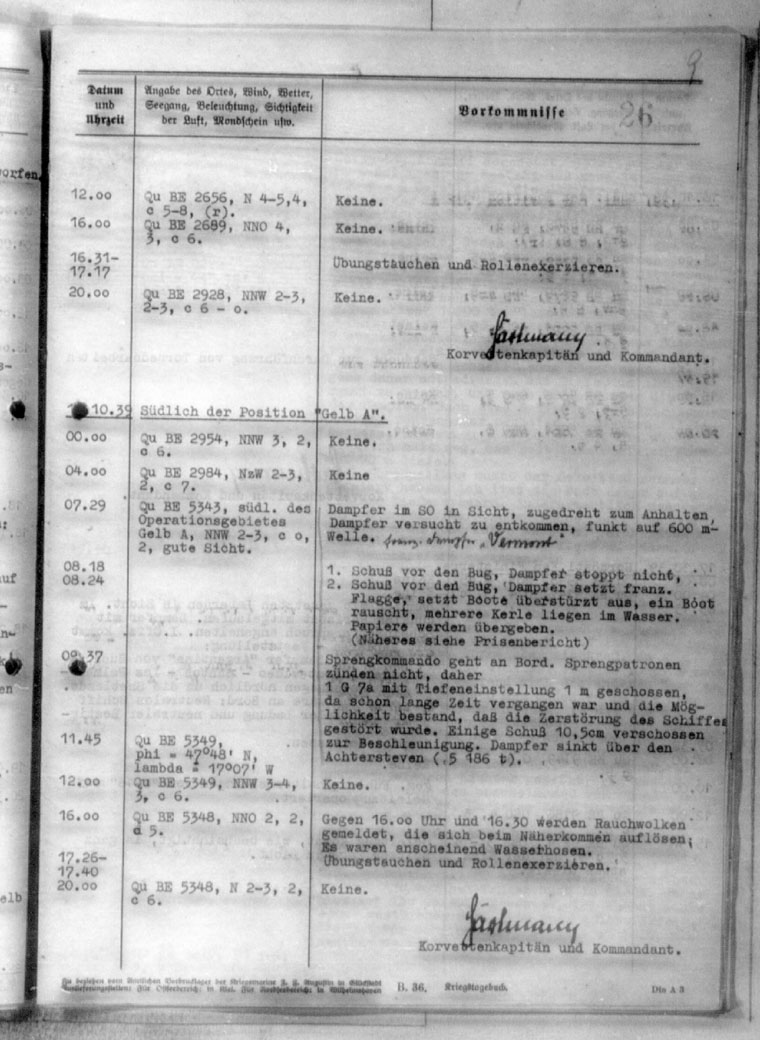 9
Datum
und
Uhrzeit
Angabe des Ortes, Wind, Wetter,
Seegang, Beleuchtung, Sichtigkeit
der Luft, Mondschein usw.
Vorkommnisse
26
12.00 Qu BE 2656, N 4-5,4, Keine.
c 5-8, (r).
16.00 Qu BE 2689, NNO 4, Keine.
3, c 6.
16.31- Übungstauchen und Rollenexerzieren.
17.17
20.00 Qu BE 2928, NNW 2-3, Keine.
2-3, c 6 - o.
Korvettenkapitän und Kommandant.
10.39 Südlich der Position "Gelb A".
00.00 Qu BE 2954, NNW 3, 2, Keine.
c 6.
04.00 Qu BE 2984, NzW 2-3, Keine
2, c 7.
07.29 Qu BE 5343, südl. des Dampfer im SO in Sicht, zugedreht zum Anhalten,
Operationsgebietes Dampfer versucht zu entkommen, funkt auf 600 m-
Gelb A, NNW 2-3, c o, Welle. franz. Dampfer „Vermont"
2, gute Sicht.
08.18 1. Schuß vor den Bug, Dampfer stoppt nicht,
08.24 2. Schuß vor den Bug, Dampfer setzt franz.
Flagge, setzt Boote überstürzt aus, ein Boot
rauscht, mehrere Kerle liegen im Wasser.
Papiere werden übergeben.
(Näheres siehe Prisenbericht.)
37 Sprengkommando geht an Bord. Sprengpatronen
zünden nicht, daher
1 G 7a mit Tiefeneinstellung 1 m geschossen,
da schon lange Zeit vergangen war und die Mög-
lichkeit bestand, daß die Zerstörung des Schiffes
gestört wurde. Einige Schuß 10,5cm verschossen
11.45 Qu BE 5349, zur Beschleunigung. Dampfer sinkt über den
phi = 47°48' N, Achtersteven (.5 186 t).
lambda = 17°07' W
12.00 Qu BE 5349, NNW 3-4, Keine.
3, c 6.
16.00 Qu BE 5348, NNO 2, 2, Gegen 16.00 Uhr und 16.30 werden Rauchwolken
5. gemeldet, die sich beim Näherkommen auflösen.
Es waren anscheinend Wasserhosen.
17.26- Übungstauchen und Rollenexerzieren.
17.40
20.00 Qu BE 5348, N 2-3, 2, Keine.
c 6.
Korvettenkapitän und Kommandant.
B. 36. Kriegstagebuch. Din A 3